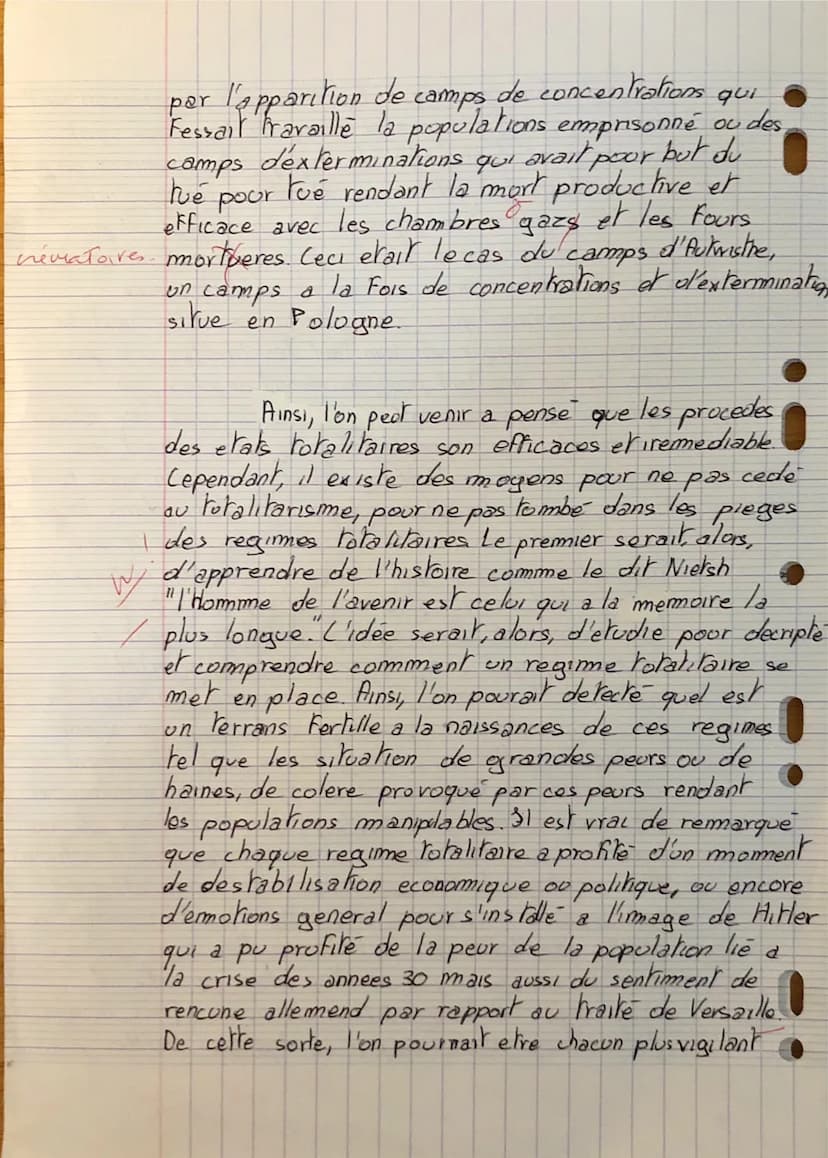 par l'apparition de camps de concentrations qui
Fessait travaillé la populations emprisonné ou des
camps d'éxterminations qui avait pour but du
tué pour tué rendant la mort productive et
efficace avec les chambres à gazs et les Fours
crématoires mortueres. Ceci etait le cas du camps d'Autwishe,
un camps a la Fois de concentrations et d'extermination
situe en Pologne.
Ainsi, l'on peot venir a pensé que les procedes
des etats totalitaires son efficaces et iremediable.
Cependant, il existe des moyens pour ne pas cedé
au totalitarisme, pour ne pas tombé dans les pieges
des regimes totalitaires. Le premier serait, alors,
d'apprendre de l'histoire comme le dit Nietsh
"l'Homme de l'avenir est celui qui a la memoire la
plus longue." L'idée serait, alors, d'etudie pour decripté
et comprendre commment un regime totalitaire se
met en place. Ainsi, l'on pourait detecté quel est
un terrans Fertille a la naissances de ces regimes
tel que les situation de grandes peurs ou de
haines, de colere provoqué par ces peurs rendant
les populations manipulables. Il est vrai de remmarqué
que chaque regime totalitaire a profité d'un momment
de destabilisation economique ou politique, ou encore
d'émotions general pour s'installé a l'image de Hitler
qui a pu profité de la peur de la population lié a
la crise des annees 30 mais aussi du sentiment de
rencune allemend par rapport au traité de Versaille.
De cette sorte, l'on pourrait etre chacun plus vigilant